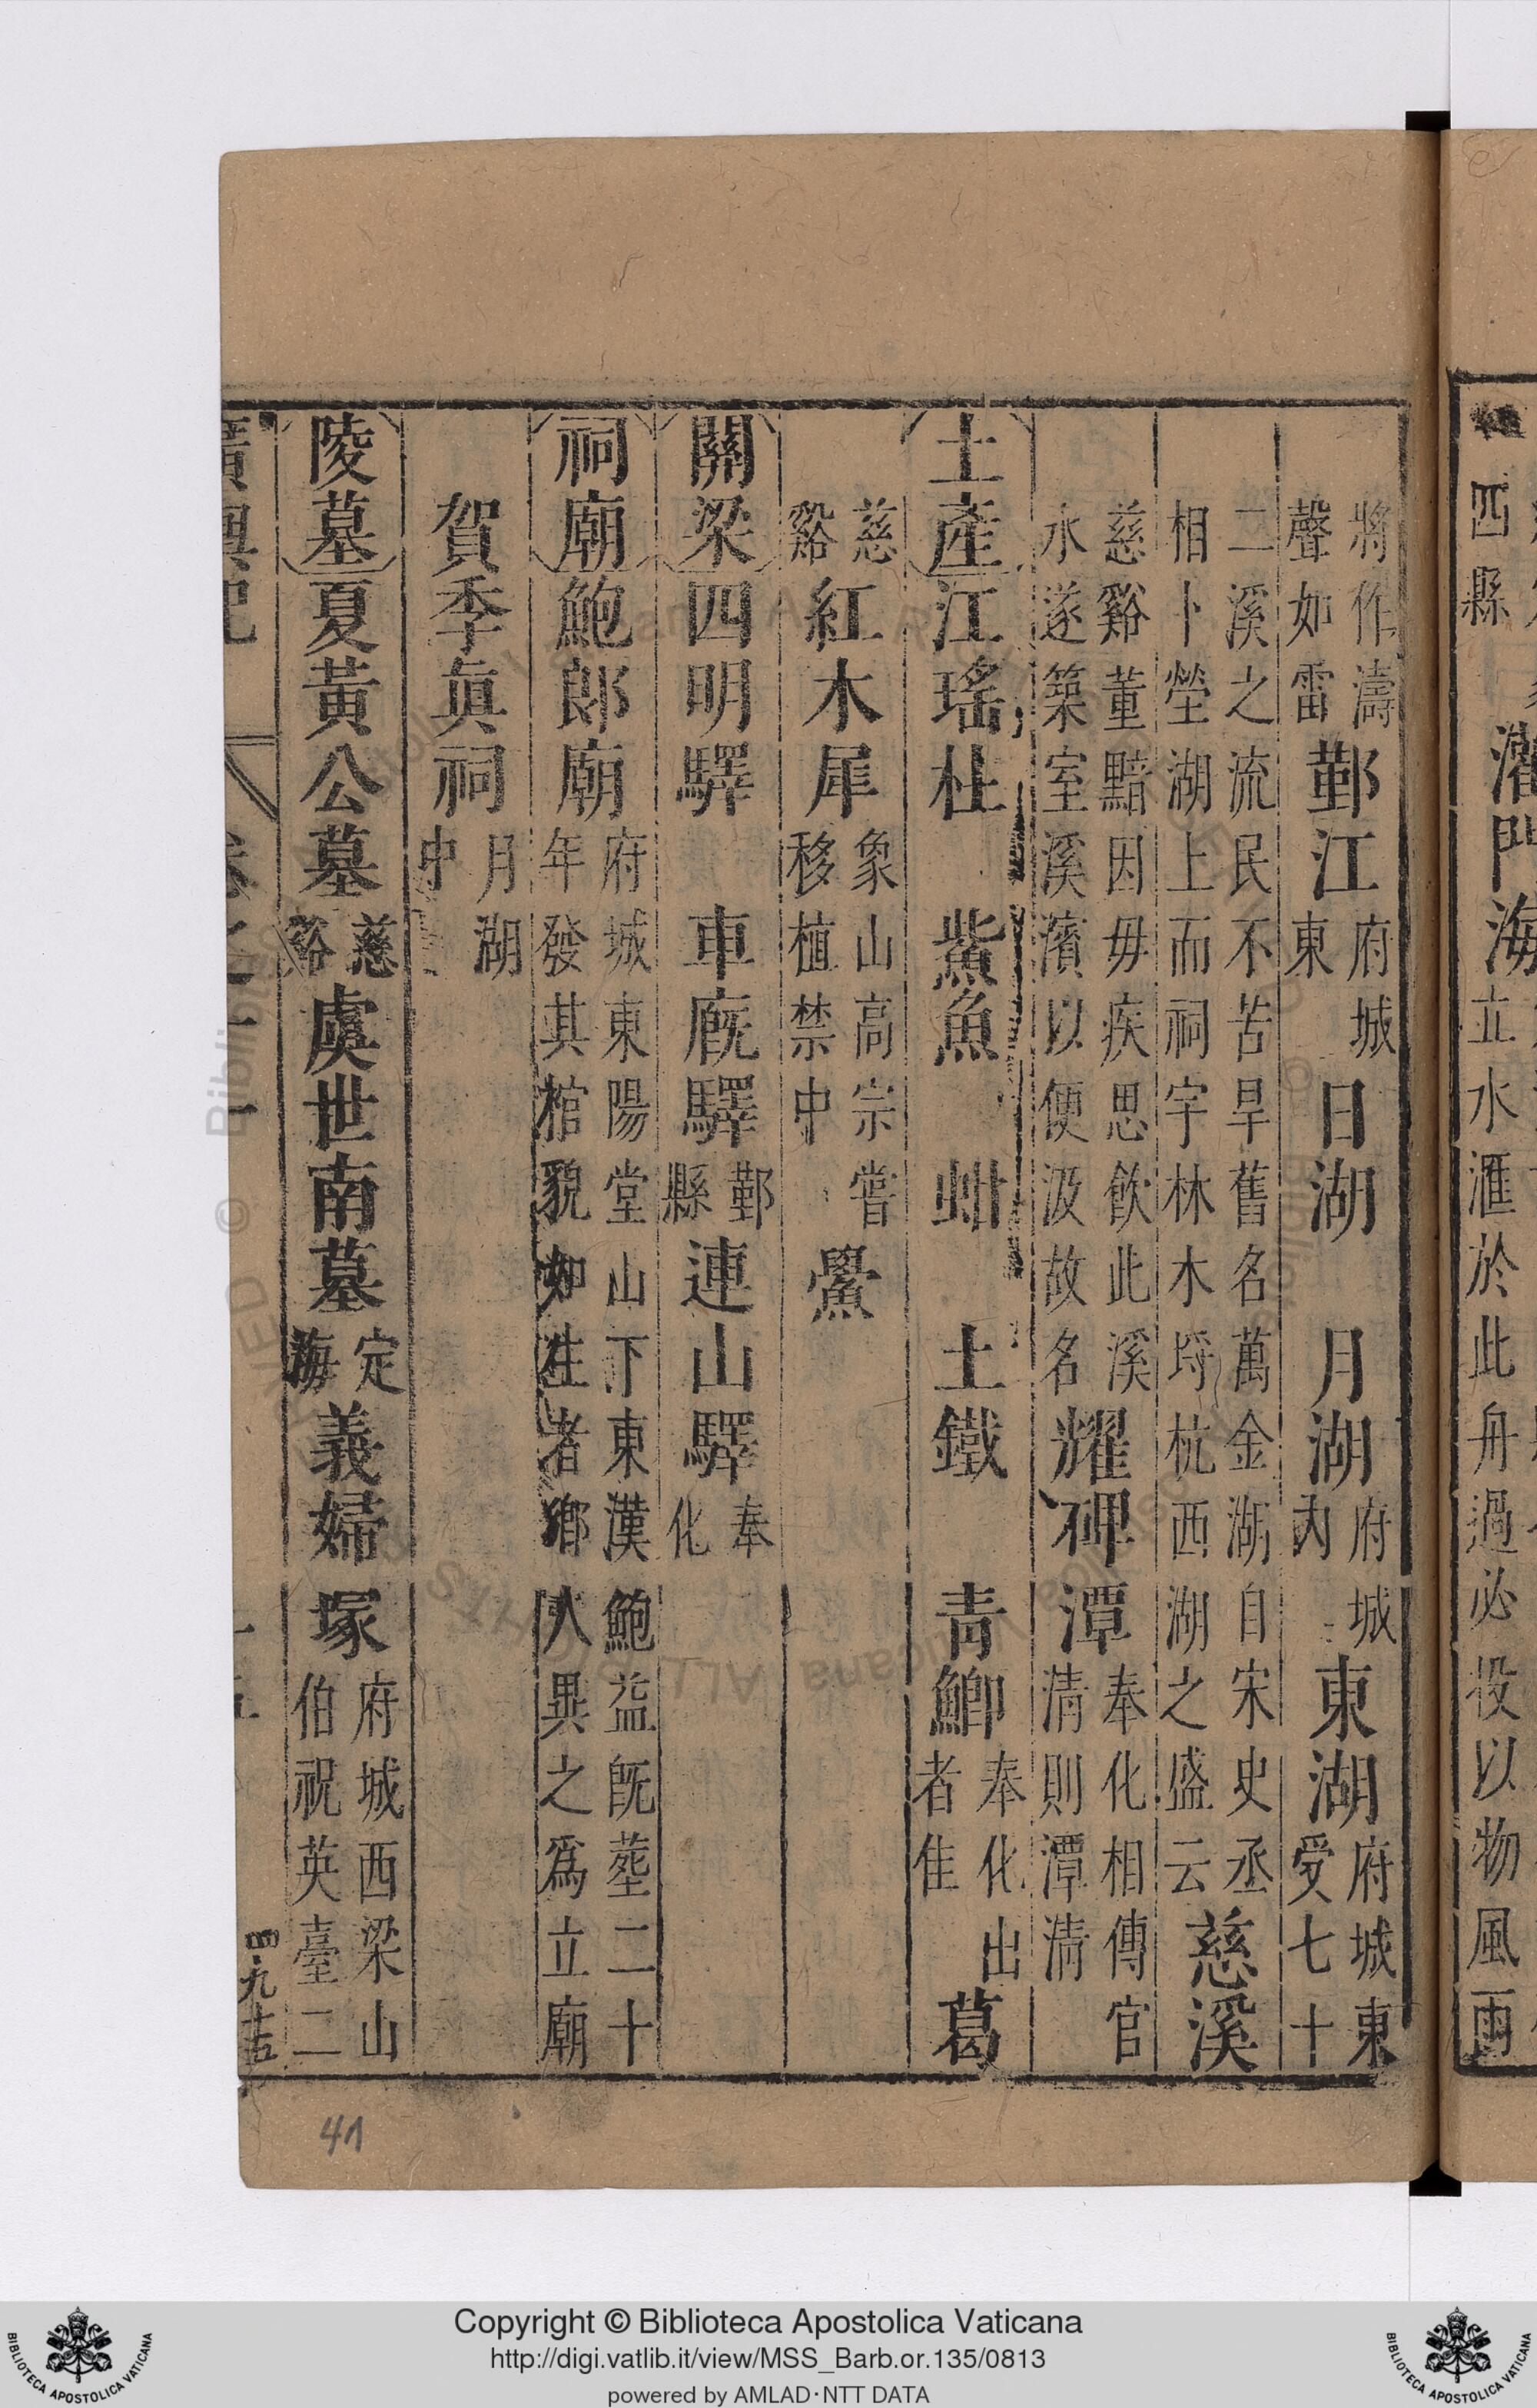 將作濤聲如雷鄞江府城東日湖月湖府城內東湖府城東受七十
二溪之流民不苦旱舊名萬金湖自宋史丞相卜塋湖上而祠宇林木埒杭西湖之盛云慈溪
慈谿董黯因毋疾思飲此溪水遂築室溪濱以便汲故名耀碑潭奉化相傳官清則潭清
土產江瑤柱鮆魚蚶土鐵青鯽奉化出者佳葛
慈谿紅木犀象山高宗嘗移植禁中鱟
關梁四明驛車廐驛鄞縣連山驛奉化
祠廟鮑郎廟府城東陽堂山下東漢鮑葢旣塟二十年發其棺貌如生者鄉人異之爲立廟
賀季眞祠月湖中
陵墓夏黃公墓慈谿虞世南墓定海義婦塚府城西梁山伯祝英臺二
四九十五
41
四縣
海
立水滙於此舟過必投以物風雨
© Biblioteca Apostolica Vaticana
Copyright © Biblioteca Apostolica Vaticana
http://digi.vatlib.it/view/MSS_Barb.or.135/0813
powered by AMLAD·NTT DATA
BIBLIOTECA APOSTOLICA VATICANA
BIBLIOTECA APOSTOLICA VATICANA